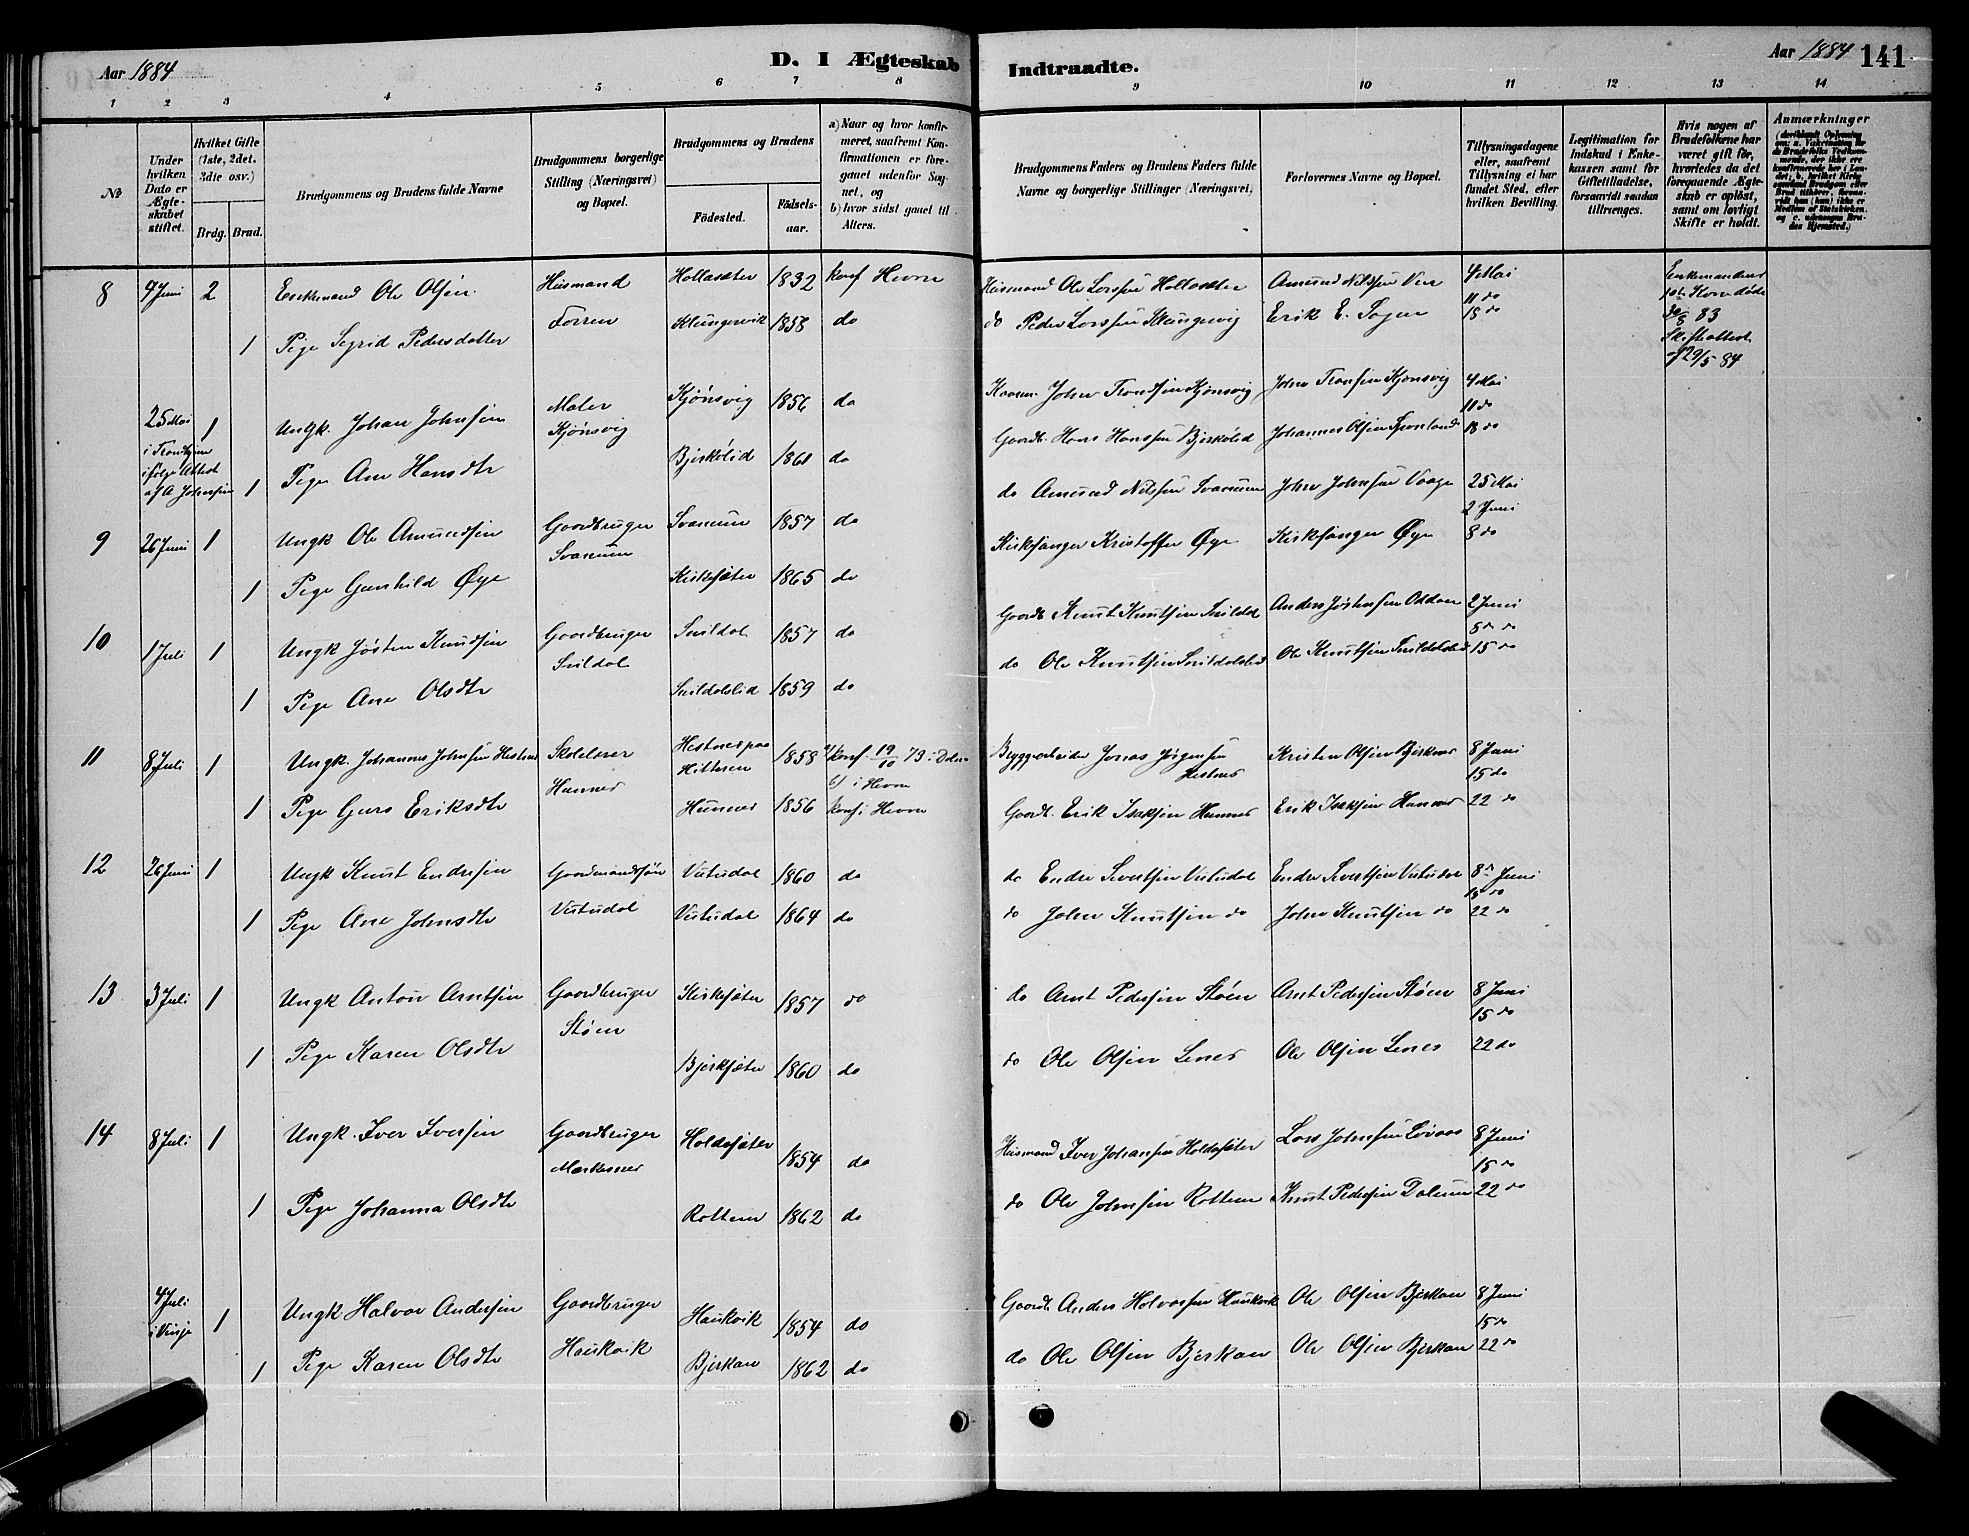 Aar 1884
D. I Ægteskab Indtraadte.
Aar 1884 141
1 2 3 4 5 6 7 8 9 10 11 12 13 14
No
Under hvilken Dato er Ægteskabet stiftet.
Hvilket Gifte (1ste, 2det, 3die osv.)
Brdg. Brud.
Brudgommens og Brudens fulde Navne
Brudgommens borgerlige Stilling (Næringsvei) og Bopæl.
Brudgommens og Brudens
Födested. Födselsaar.
a) Naar og hvor konfirmeret, saafremt Konfirmationen er foregaaet udenfor Sognet, og
b) hvor sidst gaaet til Alters.
Brudgommens Faders og Brudens Faders fulde Navne og borgerlige Stillinger (Næringsvei)
Forlovernes Navne og Bopæl.
Tillysningsdagene eller, saafremt Tillysning ei har fundet Sted, efter hvilken Bevilling.
Legitimation for Indskud i Enkekassen samt for Giftetilladelse, forsaavidt saadan tiltrænges.
Hvis nogen af Brudefolkene har været gift för, hvorledes da det foregaaende Ægteskab er oplöst, samt om lovligt Skifte er holdt.
Anmærkninger
8 4 Juni 2 Enkemand Ole Olsen Husmand Hollasæter 1832 konf Hevne Husmand Ole Larssen Hollasæter Amund Nilssen Ven 4 Mai Enkemandens
11 do
1 Pige Sigrid Pedersdatter Forren Klungervik 1858 do do Peder Larssen Klungervig Erik E. Sogen 18 do 83
29/5 84
25 Mai 1 Ungk. Johan Johnsen Maler Kjönsvig Kjönsvig 1856 do John Trondsen Kjönsvig John Tronsen Kjönsvig 4 Mai
11 do
i Trondhjem ifølge Attest af A Johnsen 1 Pige Ane Hansdtr Bjerkölid 1861 do Gaardb. Hans Hanssen Bjerkölid Johannes Olsen 18 do
9 26 Juni 1 Ungk Ole Amundsen Gaardbruger Svanem Svanem 1857 do do Amund Nilssen Svanem John Johnsen Vaage 25 Mai
2 Juni
1 Pige Gunhild Øye Kirksæter 1865 do Kirksanger Kristoffer Øye Kirksanger Øye 8 do
10 1 Juli 1 Ungk Jösten Knudsen Gaardbruger Snildal Snildal 1857 do Gaardb. Knut Knutsen Snildal Anders Jöstensen Oddan 2 Juni
8 do
1 Pige Ane Olsdtr Snildalslid 1859 do do Ole Knutsen Snildalslid Ole Knutsen Snildalslid 15 do
11 8 Juli 1 Ungk Johannes Johnsen Hestnes Skolelærer Hestnes Hitteren 1858 a) konf. 19/10 73 i Dolm Jonas Jørgensen Hestnes Kristen Olsen Bjerknes 8 Juni
b) i Hevne 15 do
1 Pige Guro Eriksdtr Hunnes Hunnes 1856 konf i Hevne Gaardb. Erik Isaksen Hunnes Erik Isaksen Hunnes 22 do
12 26 Juni 1 Ungk Knut Endresen Gaardmandssön Vitsudal 1860 do do Endre Sivertsen Vitsudal Endre Sivertsen Vitsudal 8 Juni
15 do
1 Pige Ane Johnsdtr Vitsudal Vitsudal 1864 do do John Knutsen do John Knutsen do 22 do
13 3 Juli 1 Ungk Anton Arntsen Gaardbruger Stöen Kirkesæter 1857 do do Arnt Pedersen Stöen Arnt Pedersen Stöen 8 Juni
15 do
1 Pige Karen Olsdtr Bjerksæter 1860 do do Ole Olsen Lenes Ole Olsen Lenes 22 do
14 8 Juli 1 Ungk. Iver Iversen Gaardbruger Mærkesnes Holdesæter 1854 do Husmand Iver Johansen Holdesæter Lars Johnsen Lövaas 8 Juni
15 do
1 Pige Johanna Olsdtr Rottem 1862 do do Ole Johnsen Rottem Knut Pedersen Dalum 22 do
4 Juli i Vinje 1 Ungk. Halvor Andersen Gaardbruger Haukvik Haukvik 1854 do Gaardb. Anders Halvorsen Haukvik Ole Olsen Bjerkan 8 Juni
15 do
1 Pige Karen Olsdtr Bjerkan 1862 do do Ole Olsen Bjerkan Ole Olsen Bjerkan 22 do